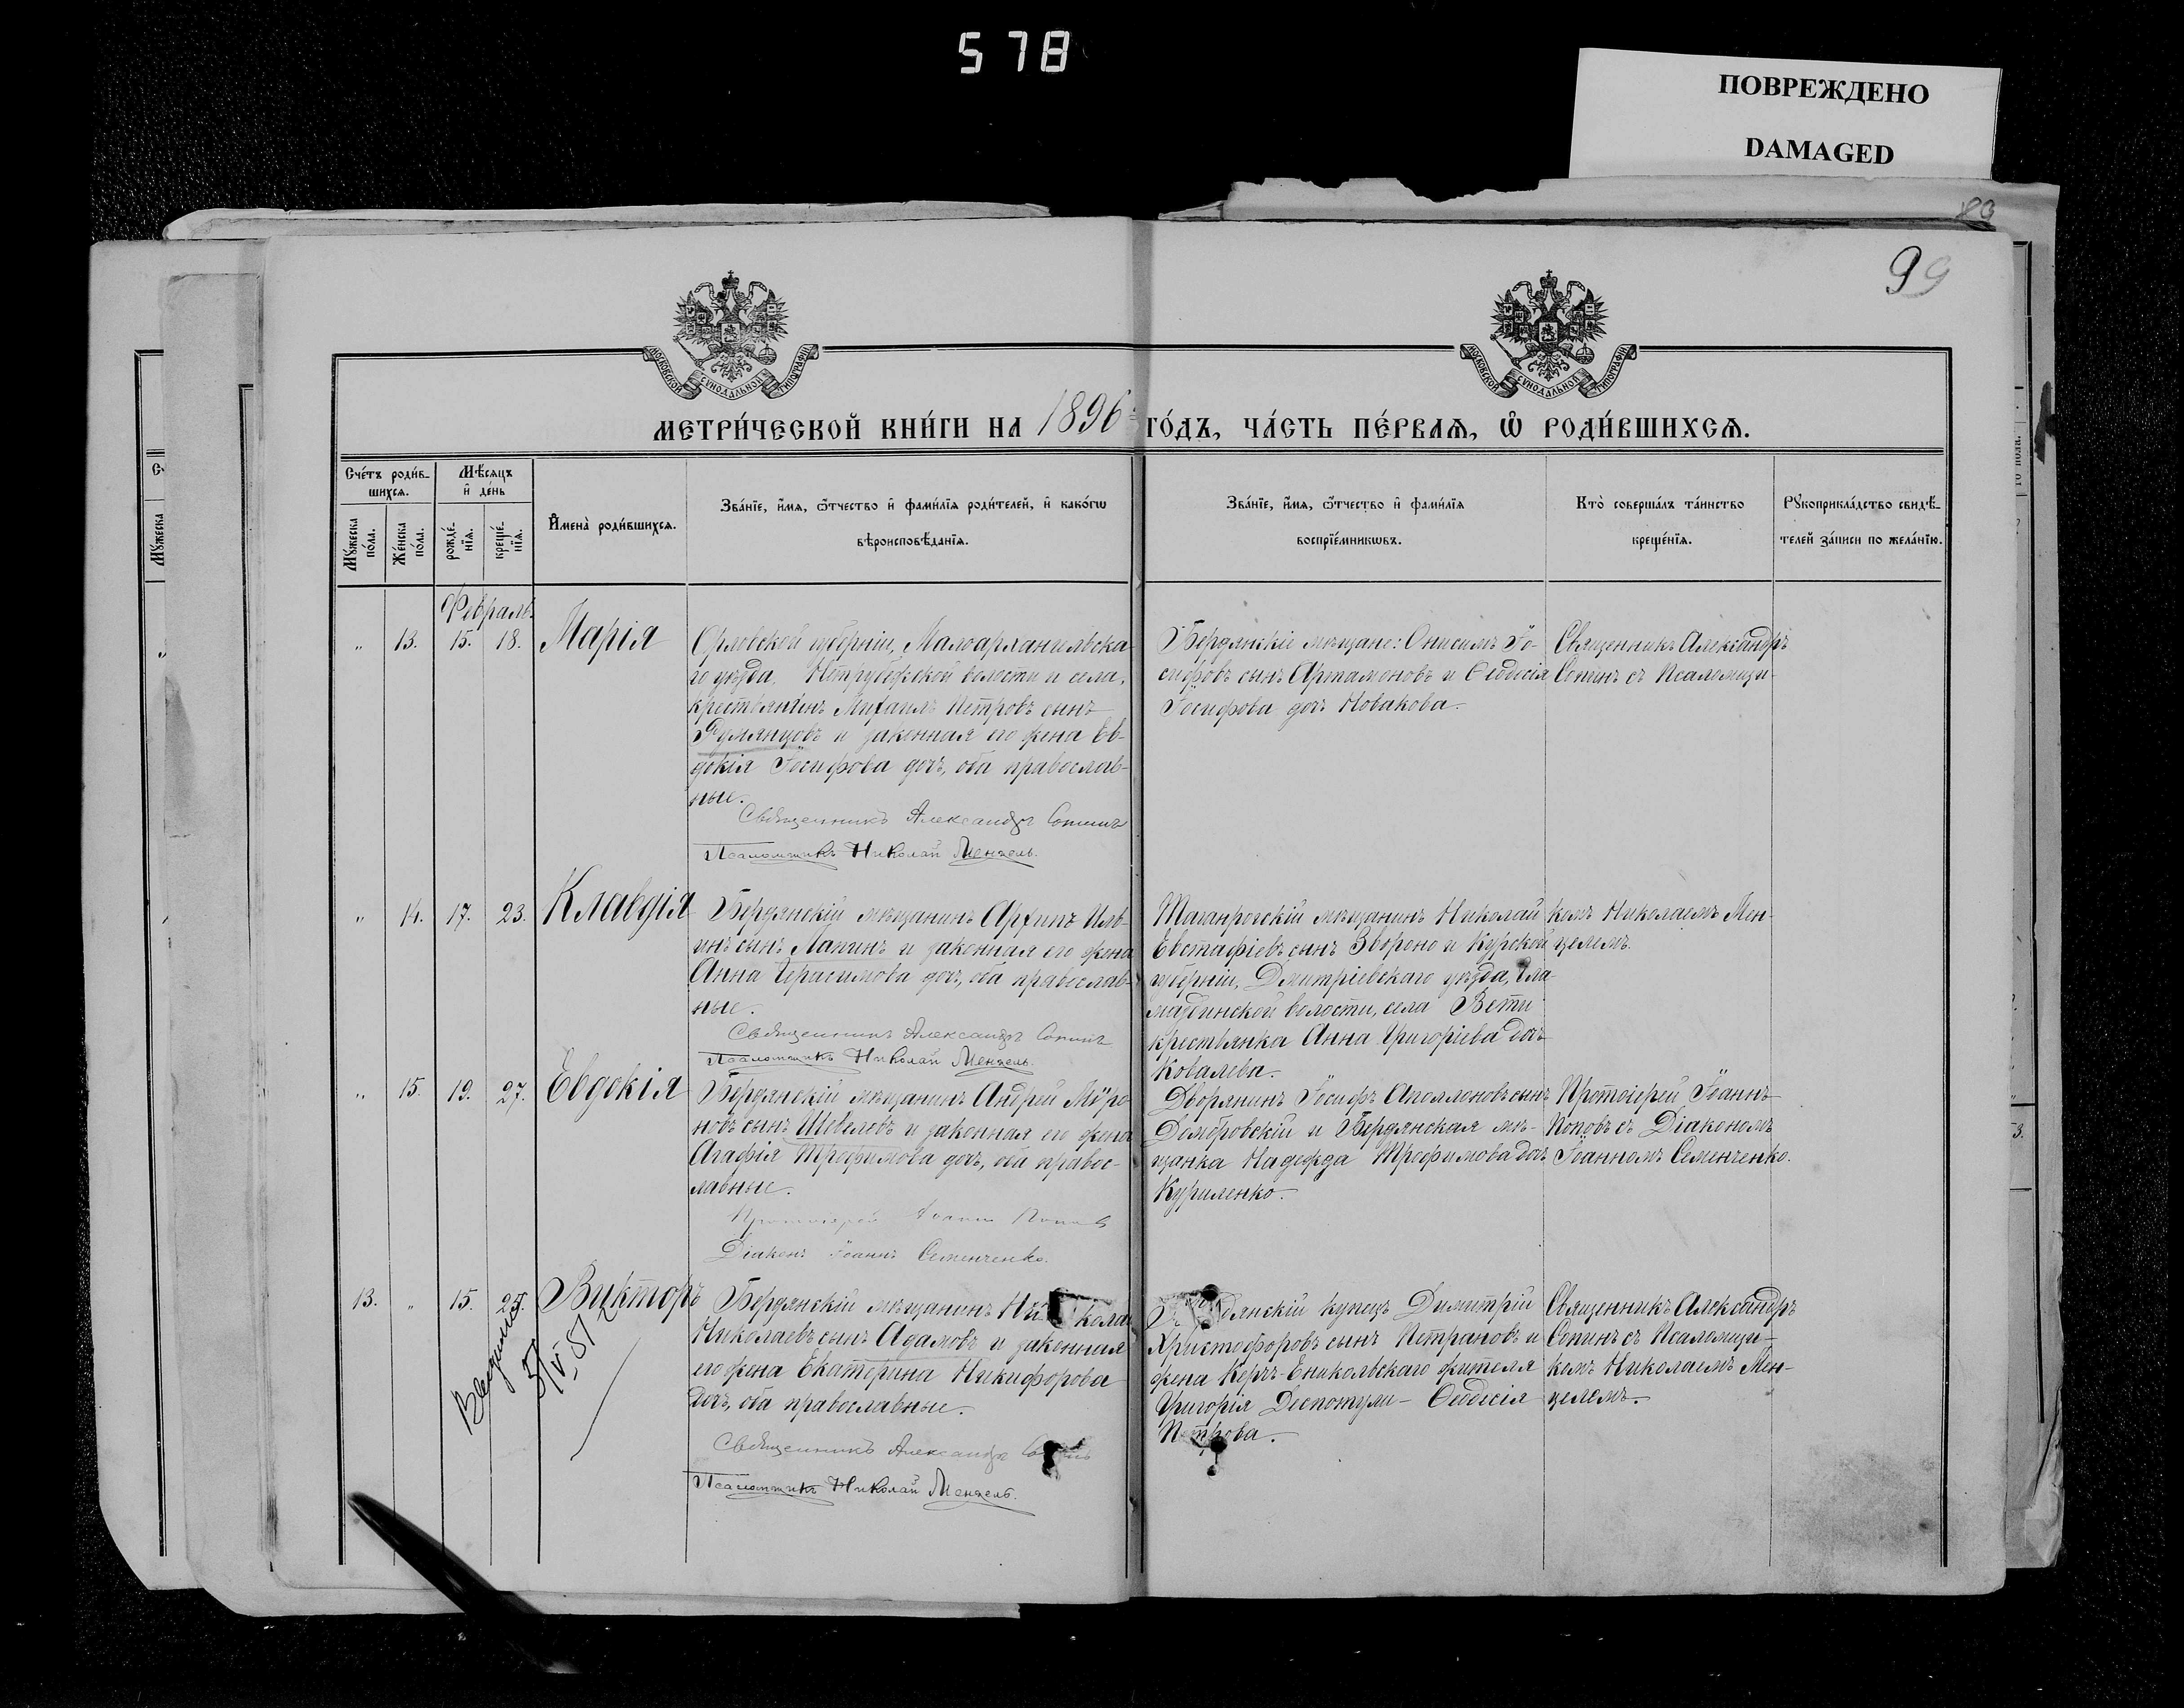 578
ПОВРЕЖДЕНО
DAMAGED
99
МОСКОВСКОЙ СѴНОДАЛЬНОЙ ТИПОГРАФІИ
МОСКОВСКОЙ СѴНОДАЛЬНОЙ ТИПОГРАФІИ
МЕТРИ́ЧЕСКОЙ КНИ́ГИ НА 1896 ГО́ДЪ, ЧА́СТЬ ПЕ́РВАѦ, Ѡ҆ РОДИ́ВШИХСѦ.
Сче́тъ роди́в-
шихсѧ.
Мѣ́сѧцъ
и҆ де́нь
Мꙋ́жеска
по́ла.
Же́нска
по́ла.
рожде́-
нїѧ.
креще́-
нїѧ.
И҆мена̀ роди́вшихсѧ.
Зва́нїе, и҆́мѧ, ѻ҆́тчество и҆ фами́лїѧ роди́телей, и҆ како́гѡ
вѣроисповѣ́данїѧ.
Зва́нїе, и҆́мѧ, ѻ҆́тчество и҆ фами́лїѧ
воспрїе́мникѡвъ.
Кто̀ соверша́лъ та́инство
креще́нїѧ.
Рꙋкоприкла́дство свидѣ́-
телей за́писи по жела́нїю.
Февраль
" 13. 15. 18. Марія
Орловской губерніи, Малоархангельска-
го уѣзда, волости и села,
крестьянинъ Михаилъ Петровъ сынъ
Румянцовъ и законная его жена Ев-
докія Іосифова дочь, оба православ-
ные.
Священникъ Александръ Сопинъ
Псаломщикъ Николай Менцель.
Бердянскіе мѣщане: Онисимъ Іо-
сифовъ сынъ Артамоновъ и Ѳеодосія
Іосифова дочь Новакова.
Священникъ Александръ
Сопинъ съ Псаломщи-
" 14. 17. 23. Клавдія
Бердянскій мѣщанинъ Архипъ Иль-
инъ сынъ Лапинъ и законная его жена
Анна Герасимова дочь, оба православ-
ные.
Священникъ Александръ Сопинъ
Псаломщикъ Николай Менцель.
Таганрогскій мѣщанинъ Николай
Евстафіевъ сынъ Звороно и Курской
губерніи, Дмитріевскаго уѣзда,
волости, села Вети
крестьянка Анна Григоріева дочь
Ковалева.
комъ Николаемъ Мен-
целемъ.
" 15. 19. 27. Евдокія
Бердянскій мѣщанинъ Андрей Мѵро-
новъ сынъ Шевелевъ и законная его жена
Агафія Трофимова дочь, оба правос-
лавные.
Протоіерей Іоаннъ Поповъ
Діаконъ Іоаннъ Семенченко.
Дворянинъ Іосифъ Аполлоновъ сынъ
Домбровскій и Бердянская мѣ-
щанка Надежда Трофимова дочь
Куриленко.
Протоіерей Іоаннъ
Поповъ съ Діакономъ
Іоанномъ Семенченко.
13. " 15. 25. Викторъ
Бердянскій мѣщанинъ
Николаевъ сынъ Адамовъ и законная
его жена Екатерина Никифорова
дочь, оба православные.
Священникъ Александръ
Псаломщикъ Николай Менцель.
дянскій купецъ Димитрій
Христофоровъ сынъ Петрановъ и
жена Керчь-Еникольскаго жителя
Григорія Деспотули - Ѳеодосія
Петрова.
Священникъ Александръ
Сопинъ съ Псаломщи-
комъ Николаемъ Мен-
целемъ.